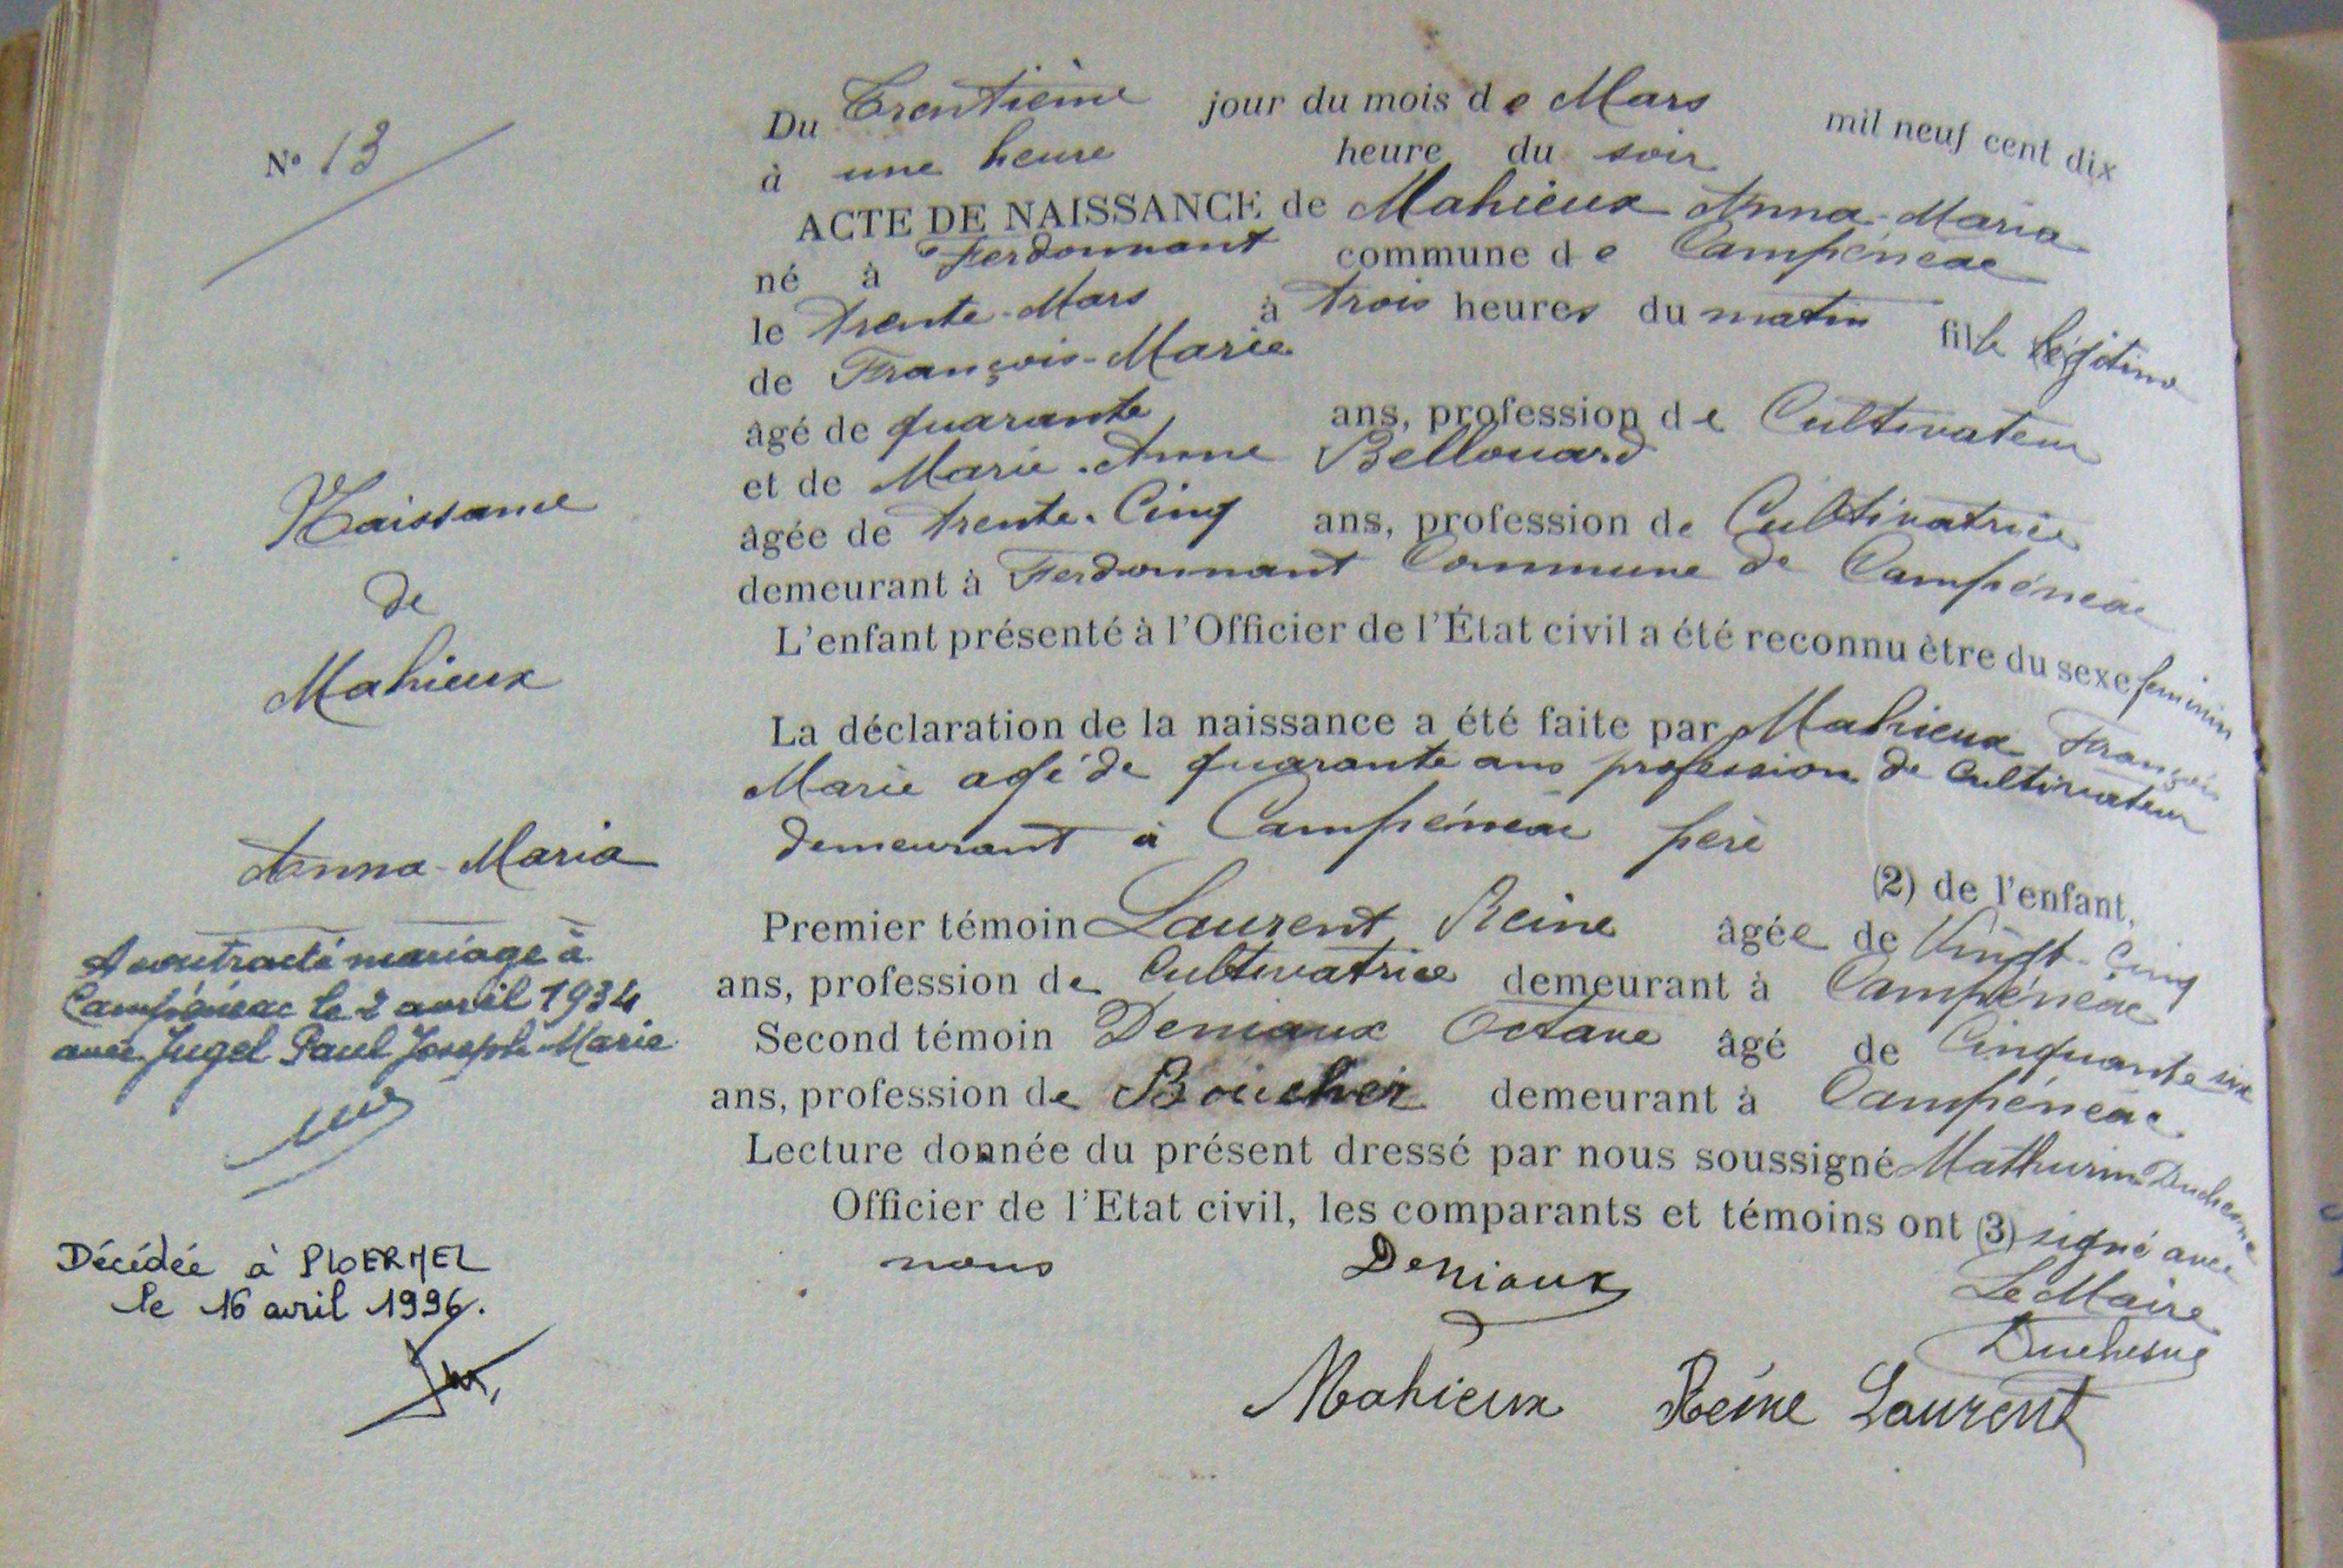 N° 13
Du Trentième jour du mois de Mars mil neuf cent dix
à une heure heure du soir
ACTE DE NAISSANCE de Mahieux Anna-Maria
né à Ferdonnant commune de Campénéac
le trente-Mars à trois heures du matin fille légitime
de François-Marie
âgé de quarante ans, profession de Cultivateur
et de Marie-Anne Bellouard
âgée de trente-Cinq ans, profession de Cultivatrice
demeurant à Ferdonnant Commune de Campénéac
L'enfant présenté à l'Officier de l'État civil a été reconnu être du sexe feminin
La déclaration de la naissance a été faite par Mahieux François
Marie agé de quarante ans profession de Cultivateur
demeurant à Campénéac père
(2) de l'enfant,
Premier témoin Laurent Reine âgée de Vingt-Cinq
ans, profession de Cultivatrice demeurant à Campénéac
Second témoin Deniaux Octave âgé de Cinquante six
ans, profession de Boucher demeurant à Campénéac
Lecture donnée du présent dressé par nous soussigné Mathurin Duchesne
Officier de l'Etat civil, les comparants et témoins ont (3) signé avec
nous
Deniaux
Le Maire
Duchesne
Mahieux Reine Laurent
Naissance
de
Mahieux
Anna-Maria
A contracté mariage à
Campénéac le 2 avril 1934
avec Jugel Paul Joseph Marie
Décédée à PLOERMEL
le 16 avril 1996.